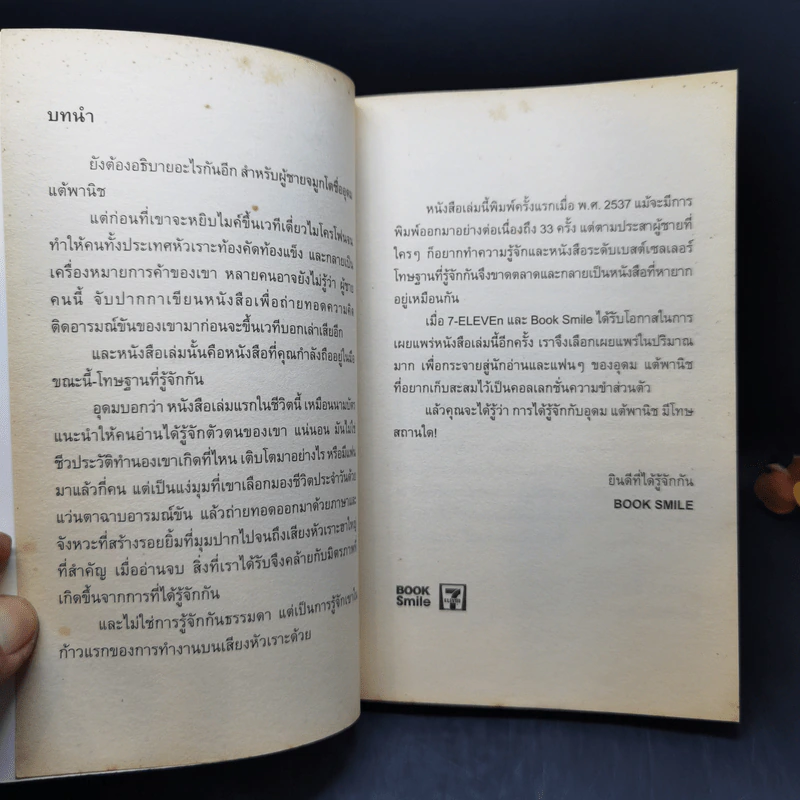 บทนำ
ยังต้องอธิบายอะไรกันอีก สำหรับผู้ชายจมูกโตชื่ออุดม
แต้พานิช
แต่ก่อนที่เขาจะหยิบไมค์ขึ้นเวทีเดี่ยวไมโครโฟนจน
ทำให้คนทั้งประเทศหัวเราะท้องคัดท้องแข็ง และกลายเป็น
เครื่องหมายการค้าของเขา หลายคนอาจยังไม่รู้ว่า ผู้ชาย
คนนี้ จับปากกาเขียนหนังสือเพื่อถ่ายทอดความคิด
ติดอารมณ์ขันของเขามาก่อนจะขึ้นเวทีบอกเล่าเสียอีก
และหนังสือเล่มนั้นคือหนังสือที่คุณกำลังถืออยู่ในมือ
ขณะนี้-โทษฐานที่รู้จักกัน
อุดมบอกว่า หนังสือเล่มแรกในชีวิตนี้ เหมือนนามบัตร
แนะนำให้คนอ่านได้รู้จักตัวตนของเขา แน่นอน มันไม่ใช่
ชีวประวัติทำนองเขาเกิดที่ไหน เติบโตมาอย่างไร หรือมีแฟน
มาแล้วกี่คน แต่เป็นแง่มุมที่เขาเลือกมองชีวิตประจำวันด้วย
แว่นตาฉาบอารมณ์ขัน แล้วถ่ายทอดออกมาด้วยภาษาและ
จังหวะที่สร้างรอยยิ้มที่มุมปากไปจนถึงเสียงหัวเราะฮาใหญ่
ที่สำคัญ เมื่ออ่านจบ สิ่งที่เราได้รับจึงคล้ายกับมิตรภาพที่
เกิดขึ้นจากการที่ได้รู้จักกัน
และไม่ใช่การรู้จักกันธรรมดา แต่เป็นการรู้จักเขาใน
ก้าวแรกของการทำงานบนเสียงหัวเราะด้วย
หนังสือเล่มนี้พิมพ์ครั้งแรกเมื่อ พ.ศ. 2537 แม้จะมีการ
พิมพ์ออกมาอย่างต่อเนื่องถึง 33 ครั้ง แต่ตามประสาผู้ชายที่
ใครๆ ก็อยากทำความรู้จักและหนังสือระดับเบสต์เซลเลอร์
โทษฐานที่รู้จักกันจึงขาดตลาดและกลายเป็นหนังสือที่หายาก
อยู่เหมือนกัน
เมื่อ 7-ELEVEn และ Book Smile ได้รับโอกาสในการ
เผยแพร่หนังสือเล่มนี้อีกครั้ง เราจึงเลือกเผยแพร่ในปริมาณ
มาก เพื่อกระจายสู่นักอ่านและแฟนๆ ของอุดม แต้พานิช
ที่อยากเก็บสะสมไว้เป็นคอลเลกชั่นความขำส่วนตัว
แล้วคุณจะได้รู้ว่า การได้รู้จักกับอุดม แต้พานิช มีโทษ
สถานใด!
ยินดีที่ได้รู้จักกัน
BOOK SMILE
BOOK
Smile
7
ELEVEn